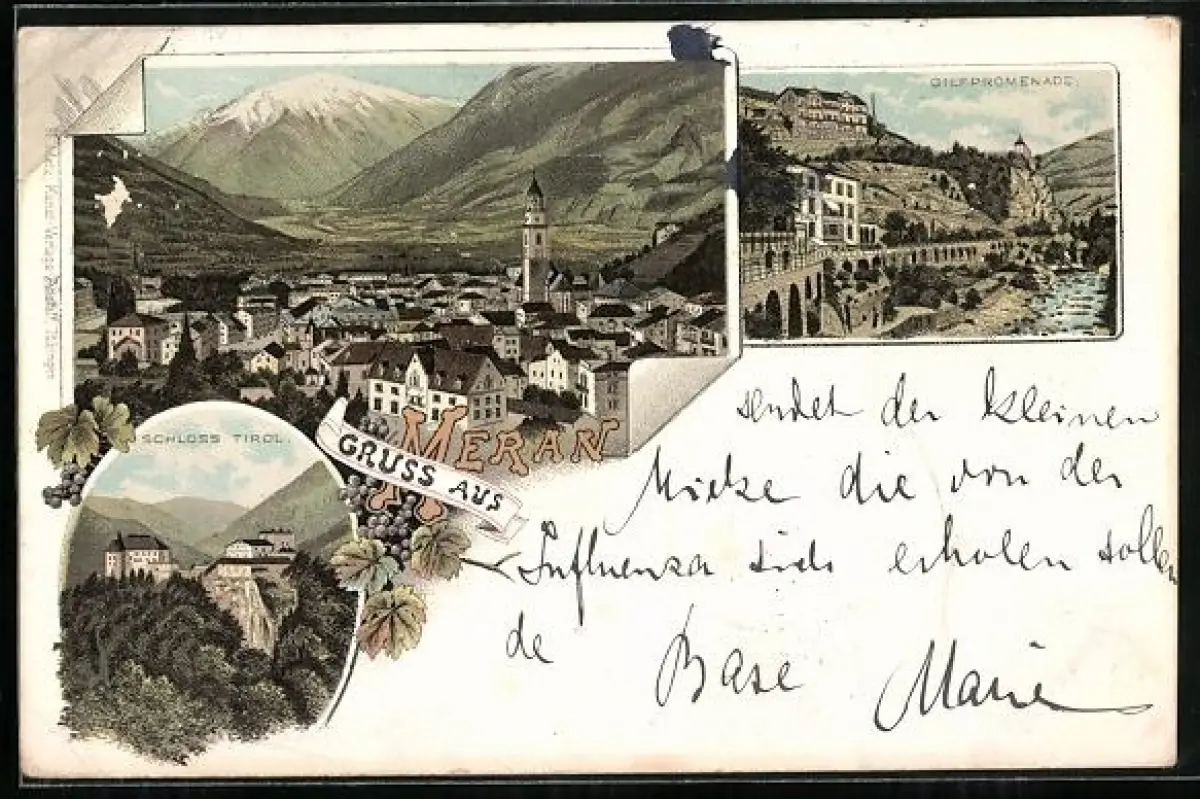 GILFPROMENADE.
SCHLOSS TIROL.
GRUSS AUS
MERAN
sendet der kleinen
Mieke die von der
Influenza sich erholen sollen
de Base Marie